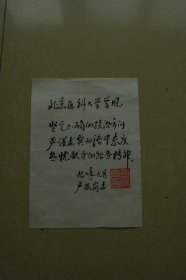 北京医科大学学风
坚定正确的政治方向
严谨求实的治学态度
热忱献身的服务精神
九〇年九月